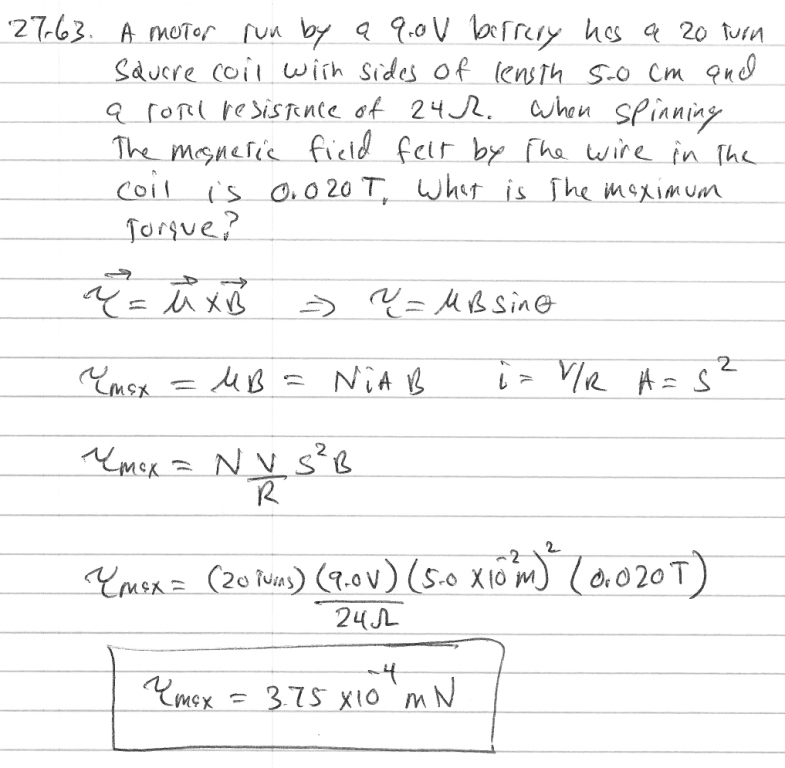 27.63. A motor run by a 9.0V battery has a 20 turn
square coil with sides of length 5.0 cm and
a total resistance of 24Ω. When spinning
the magnetic field felt by the wire in the
coil is 0.020T. What is the maximum
Torque?
τ⃗ = μ⃗ × B⃗ ⇒ τ = μBsinθ
τmax = μB = NiAB i = V/R A = S²
τmax = N V/R S²B
τmax = (20 turns) (9.0V)/24Ω (5.0 ×10⁻²m)² (0.020T)
τmax = 3.75 ×10⁻⁴ mN